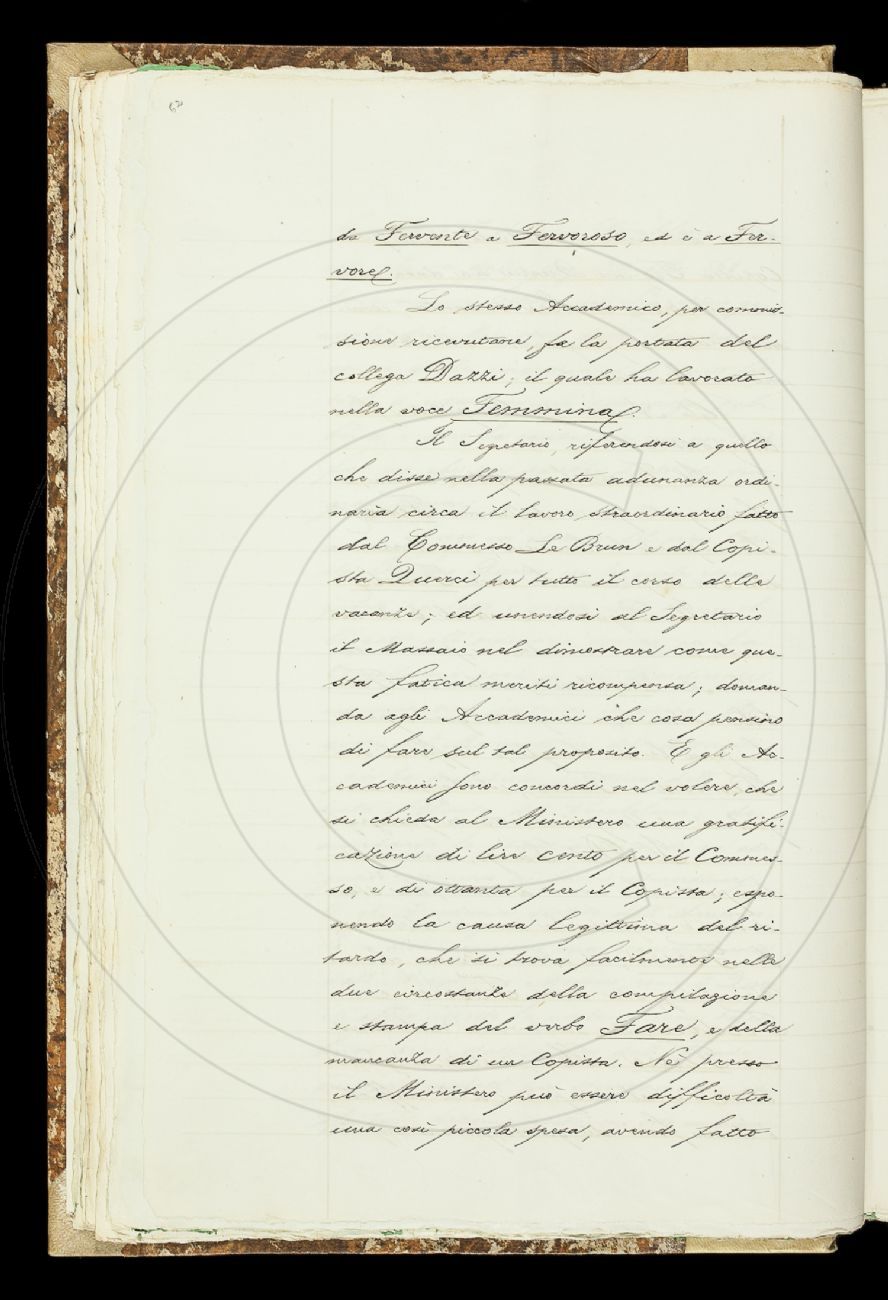 62
da Fervente a Fervoroso, ed è a Fer-
vore.
Lo stesso Accademico, per commis-
sione ricevutane, fa la portata del
collega Dazzi; il quale ha lavorato
nella voce Femmina.
Il Segretario, riferendosi a quello
che disse nella passata adunanza ordi-
naria circa il lavoro straordinario fatto
dal Commesso Le Brun e dal Copi-
sta Querci per tutto il corso delle
vacanze; ed unendosi al Segretario
il Massaio nel dimostrare come que-
sta fatica meriti ricompensa; doman-
da agli Accademici che cosa pensino
di fare sul tal proposito. E gli Ac-
cademici sono concordi nel volere, che
si chieda al Ministero una gratifi-
cazione di lire cento per il Commes-
so, e di ottanta per il Copista; espo-
nendo la causa legittima del ri-
tardo, che si trova facilmente nelle
due circostanze della compilazione
e stampa del verbo Fare, e della
mancanza di un Copista. Nè presso
il Ministero può essere difficoltà
una così piccola spesa, avendo fatto